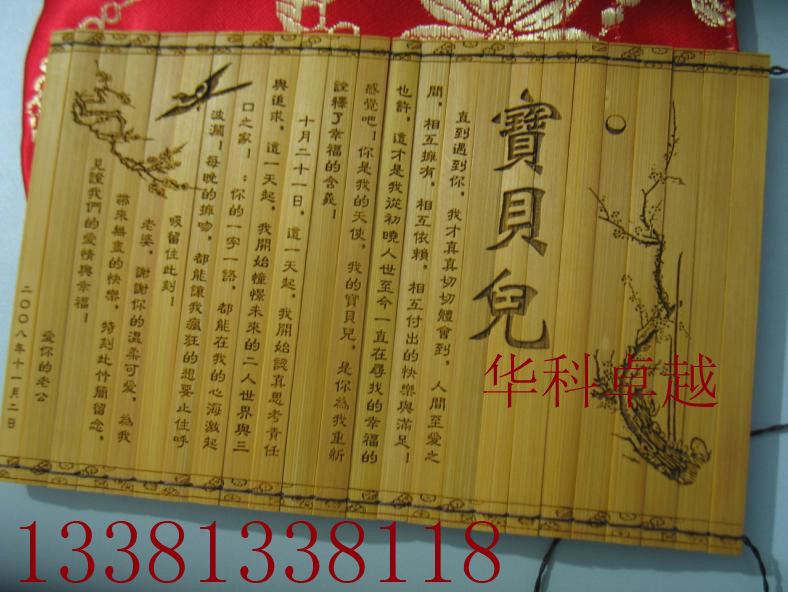 寶貝兒
直到遇到你，我才真真切切體會到，人間至愛之
間，相互擁有，相互依賴，相互付出的快樂與滿足！
也許，這才是我從初曉人世至今一直在尋找的幸福的
感覺吧！你是我的天使，我的寶貝兒，是你為我重新
詮釋了幸福的含義！
十月二十一日，這一天起，我開始認真思考責任
與追求，這一天起，我開始憧憬未來的二人世界與三
口之家！：你的一字一語，都能在我的心海激起
波瀾！每晚的擁吻，都能讓我瘋狂的想要止住呼
吸留住此刻！
老婆，謝謝你的溫柔可愛，為我
帶來無盡的快樂，特刻此竹簡留念，
見證我們的愛情與幸福！
愛你的老公
二00八年十一月二日
华科卓越
13381338118